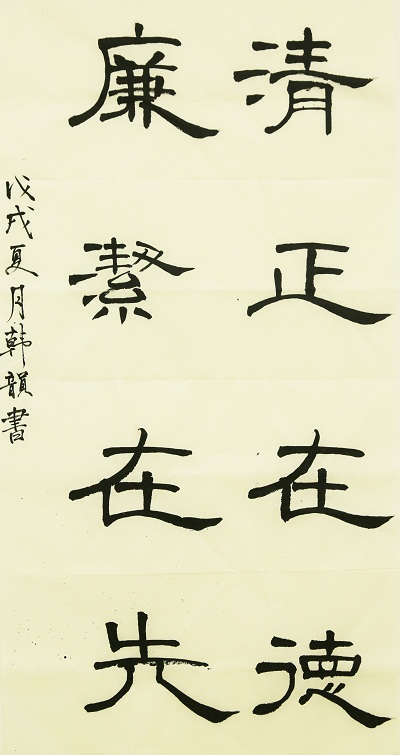 清正在德
廉絜在先
戊戌夏月韩韻書